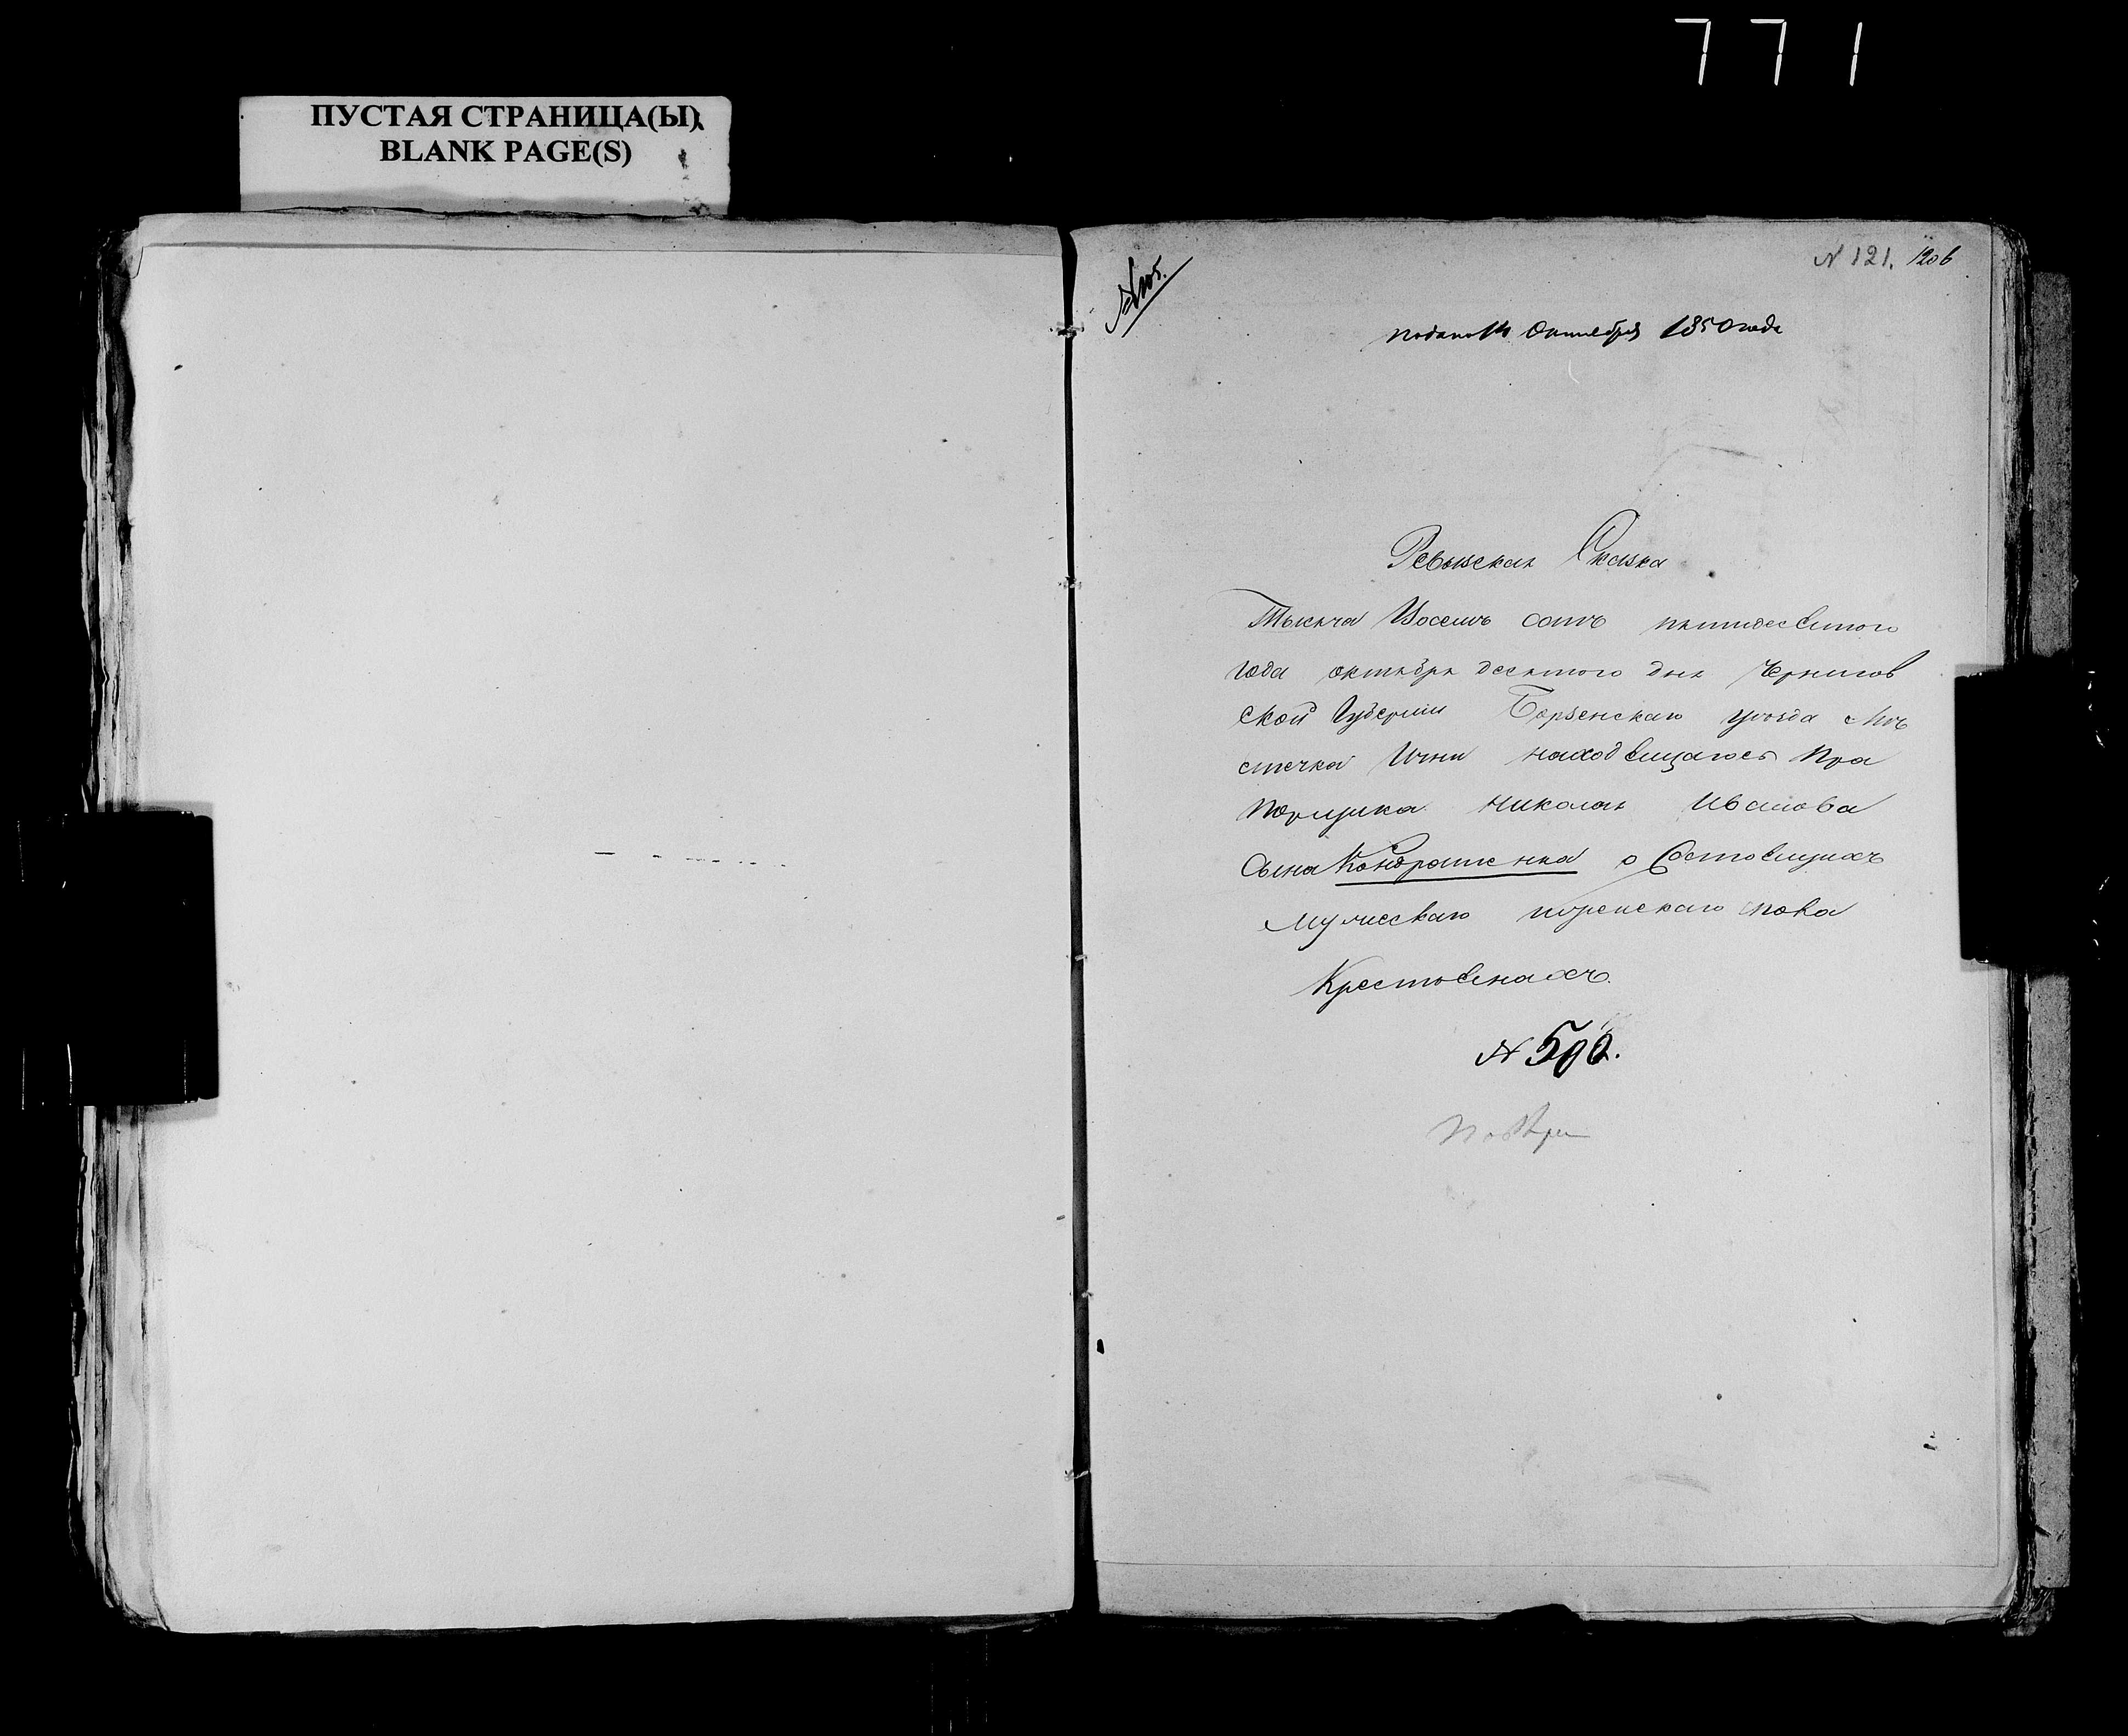 771
ПУСТАЯ СТРАНИЦА(Ы)
BLANK PAGE(S)
N 121. 1206
подано 14 Октября 1850 года
Ревыская Сказка
Тысяча Восемь сотъ пятидесятого
года октября десятого дня Чернигов
ской Губернии Борзенскаго уезда Мѣ
стечка Ични находящагось Пра
порщика Николая Иванова
Сына Кондрашенка о Состоящихъ
мужескаго женскаго пола
Крестьянахъ.
N 506.